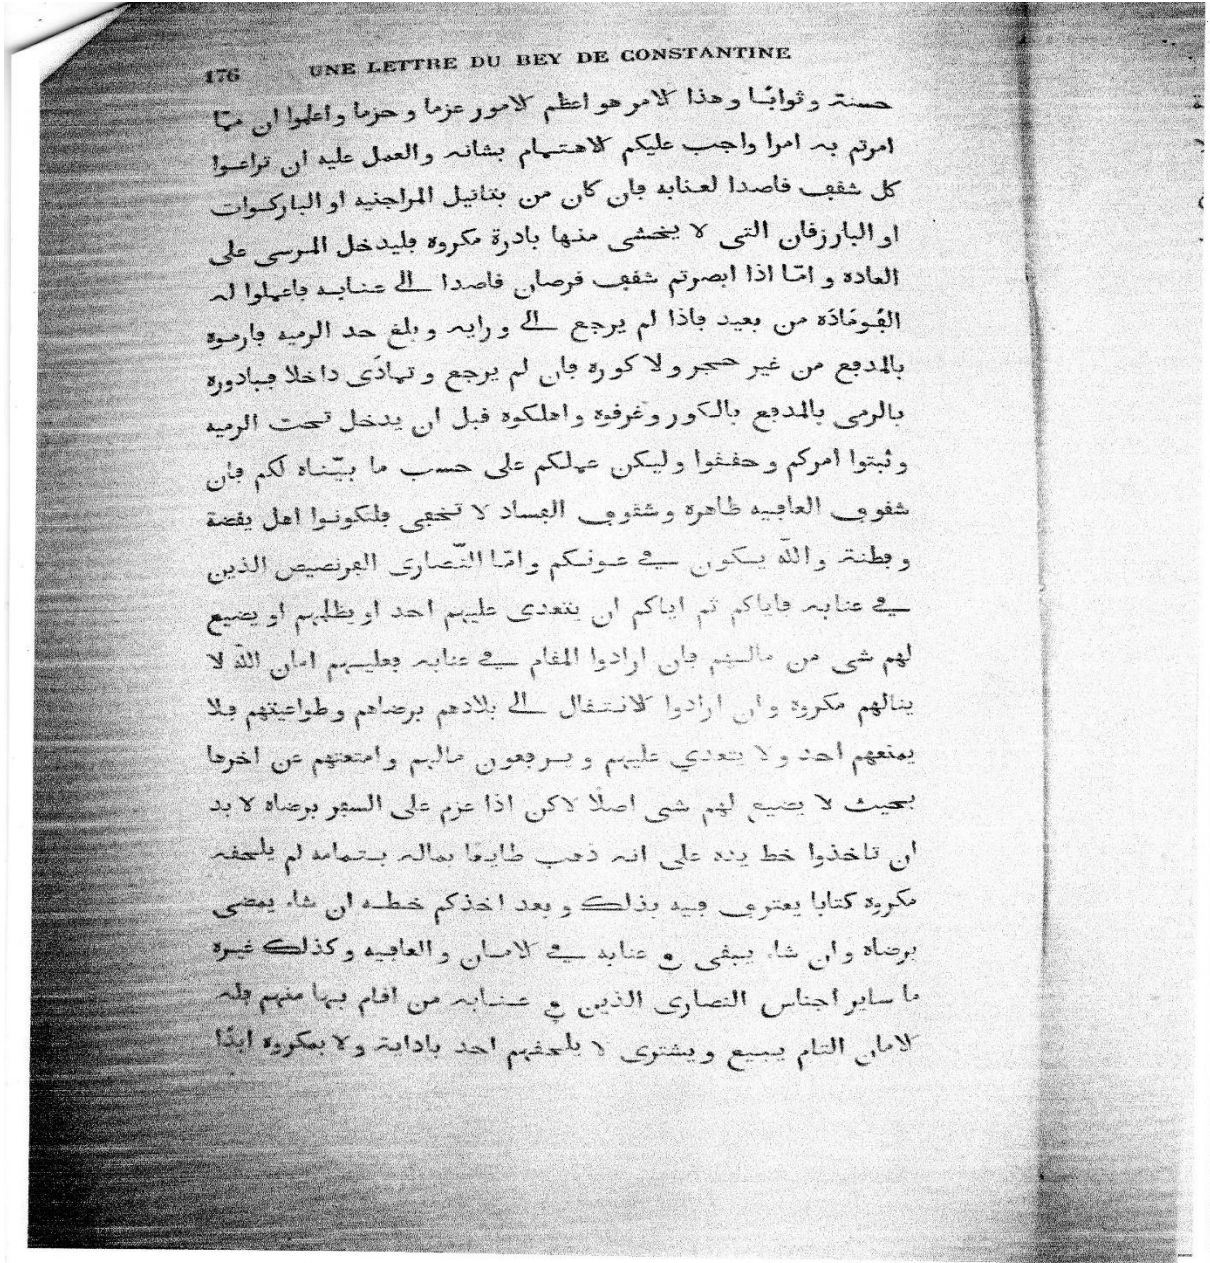 176 UNE LETTRE DU BEY DE CONSTANTINE
حسنة وثوابًا وهذا الامر هو اعظم الامور عزما وحزما واعلموا ان ممّا
امرتم به امرا واجب عليكم الاهتمام بشانه والعمل عليه ان تراعوا
كل شقف قاصدا لعنابه فان كان من بتاتيل المراجنيه او الباركوات
او البارزقان التى لا يخشى منها بادرة مكروه فليدخل المرسى على
العاده وامّا اذا ابصرتم شقف قرصان قاصدا الى عنابه فاعملوا له
القُومَادَه من بعيد فاذا لم يرجع الى ورايه وبلغ حد الرميه فارموه
بالمدفع من غير حجر ولا كوره فان لم يرجع وتمادَى داخلا فبادوره
بالرمى بالمدفع بالكور وغرقوه واهلكوه قبل ان يدخل تحت الرميه
وثبتوا امركم وحققوا وليكن عملكم على حسب ما بيّناه لكم فان
شقوف العافيه ظاهرة وشقوف الفساد لا تخفى فلكونوا اهل يقضة
وفطنة والله يكون في عونكم وامّا النّصارى الفرنصيص الذين
في عنابه فاياكم ثم اياكم ان يتعدى عليهم احد او يظلمهم او يضيع
لهم شى من مالهم فان ارادوا المقام في عنابه فعليهم امان الله لا
ينالهم مكروه وان ارادوا الانتقال الى بلادهم برضاهم وطواعيتهم فلا
يمنعهم احد ولا يتعدي عليهم ويرفعون مالهم وامتعتهم عن اخرها
بحيث لا يضيع لهم شى اصلًا لاكن اذا عزم على السفر برضاه لا بد
ان تاخذوا خط يده على انه ذهب طايعًا بماله بتمامه لم يلحقه
مكروه كتابا يعترف فيه بذلك وبعد اخذكم خطه ان شاء يمضى
برضاه وان شاء يبقى في عنابه في الامان والعافيه وكذلك غيره
ما ساير اجناس النصارى الذين في عنابه من اقام بها منهم فله
الامان التام يبيع ويشترى لا يلحقهم احد باداية ولا بمكروه ابدًا